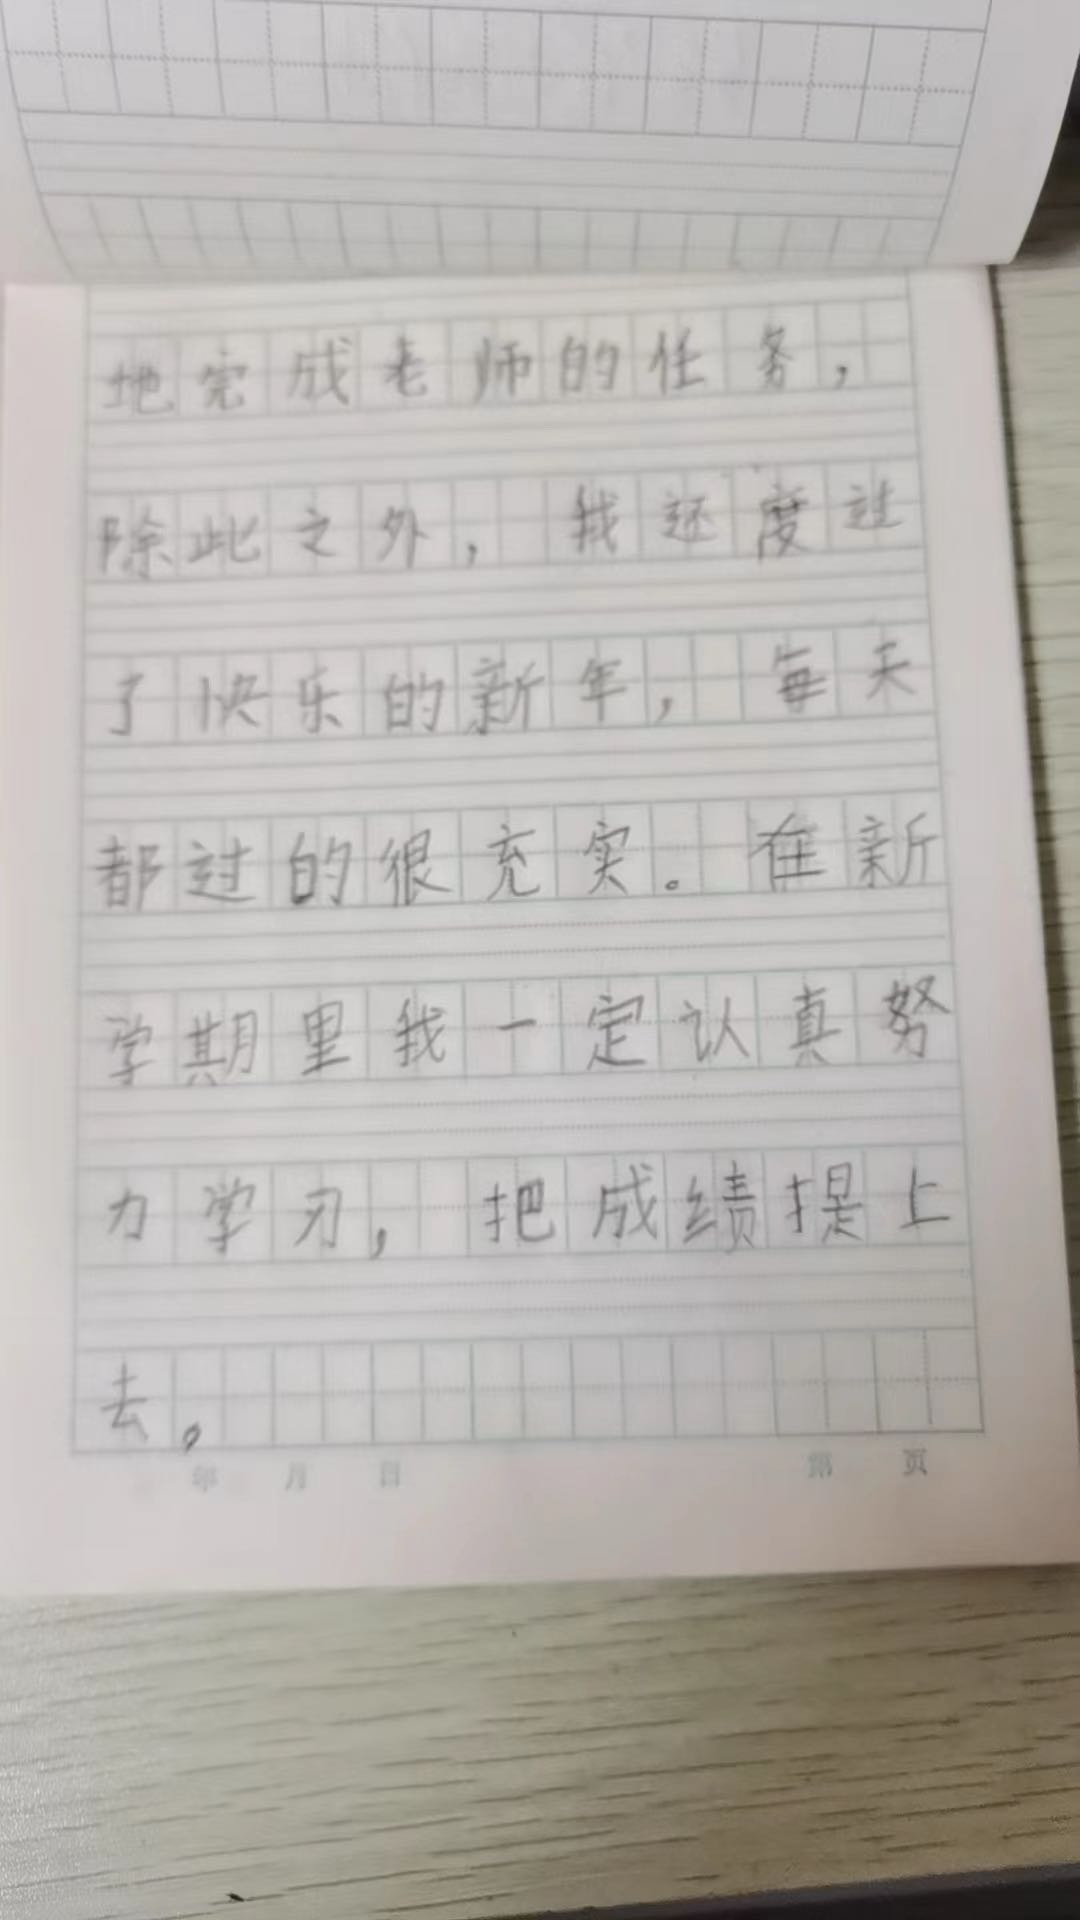 地完成老师的任务，
除此之外，我还度过
了快乐的新年，每天
都过的很充实。在新
学期里我一定认真努
力学习，把成绩提上
去。
年 月 日 第 页